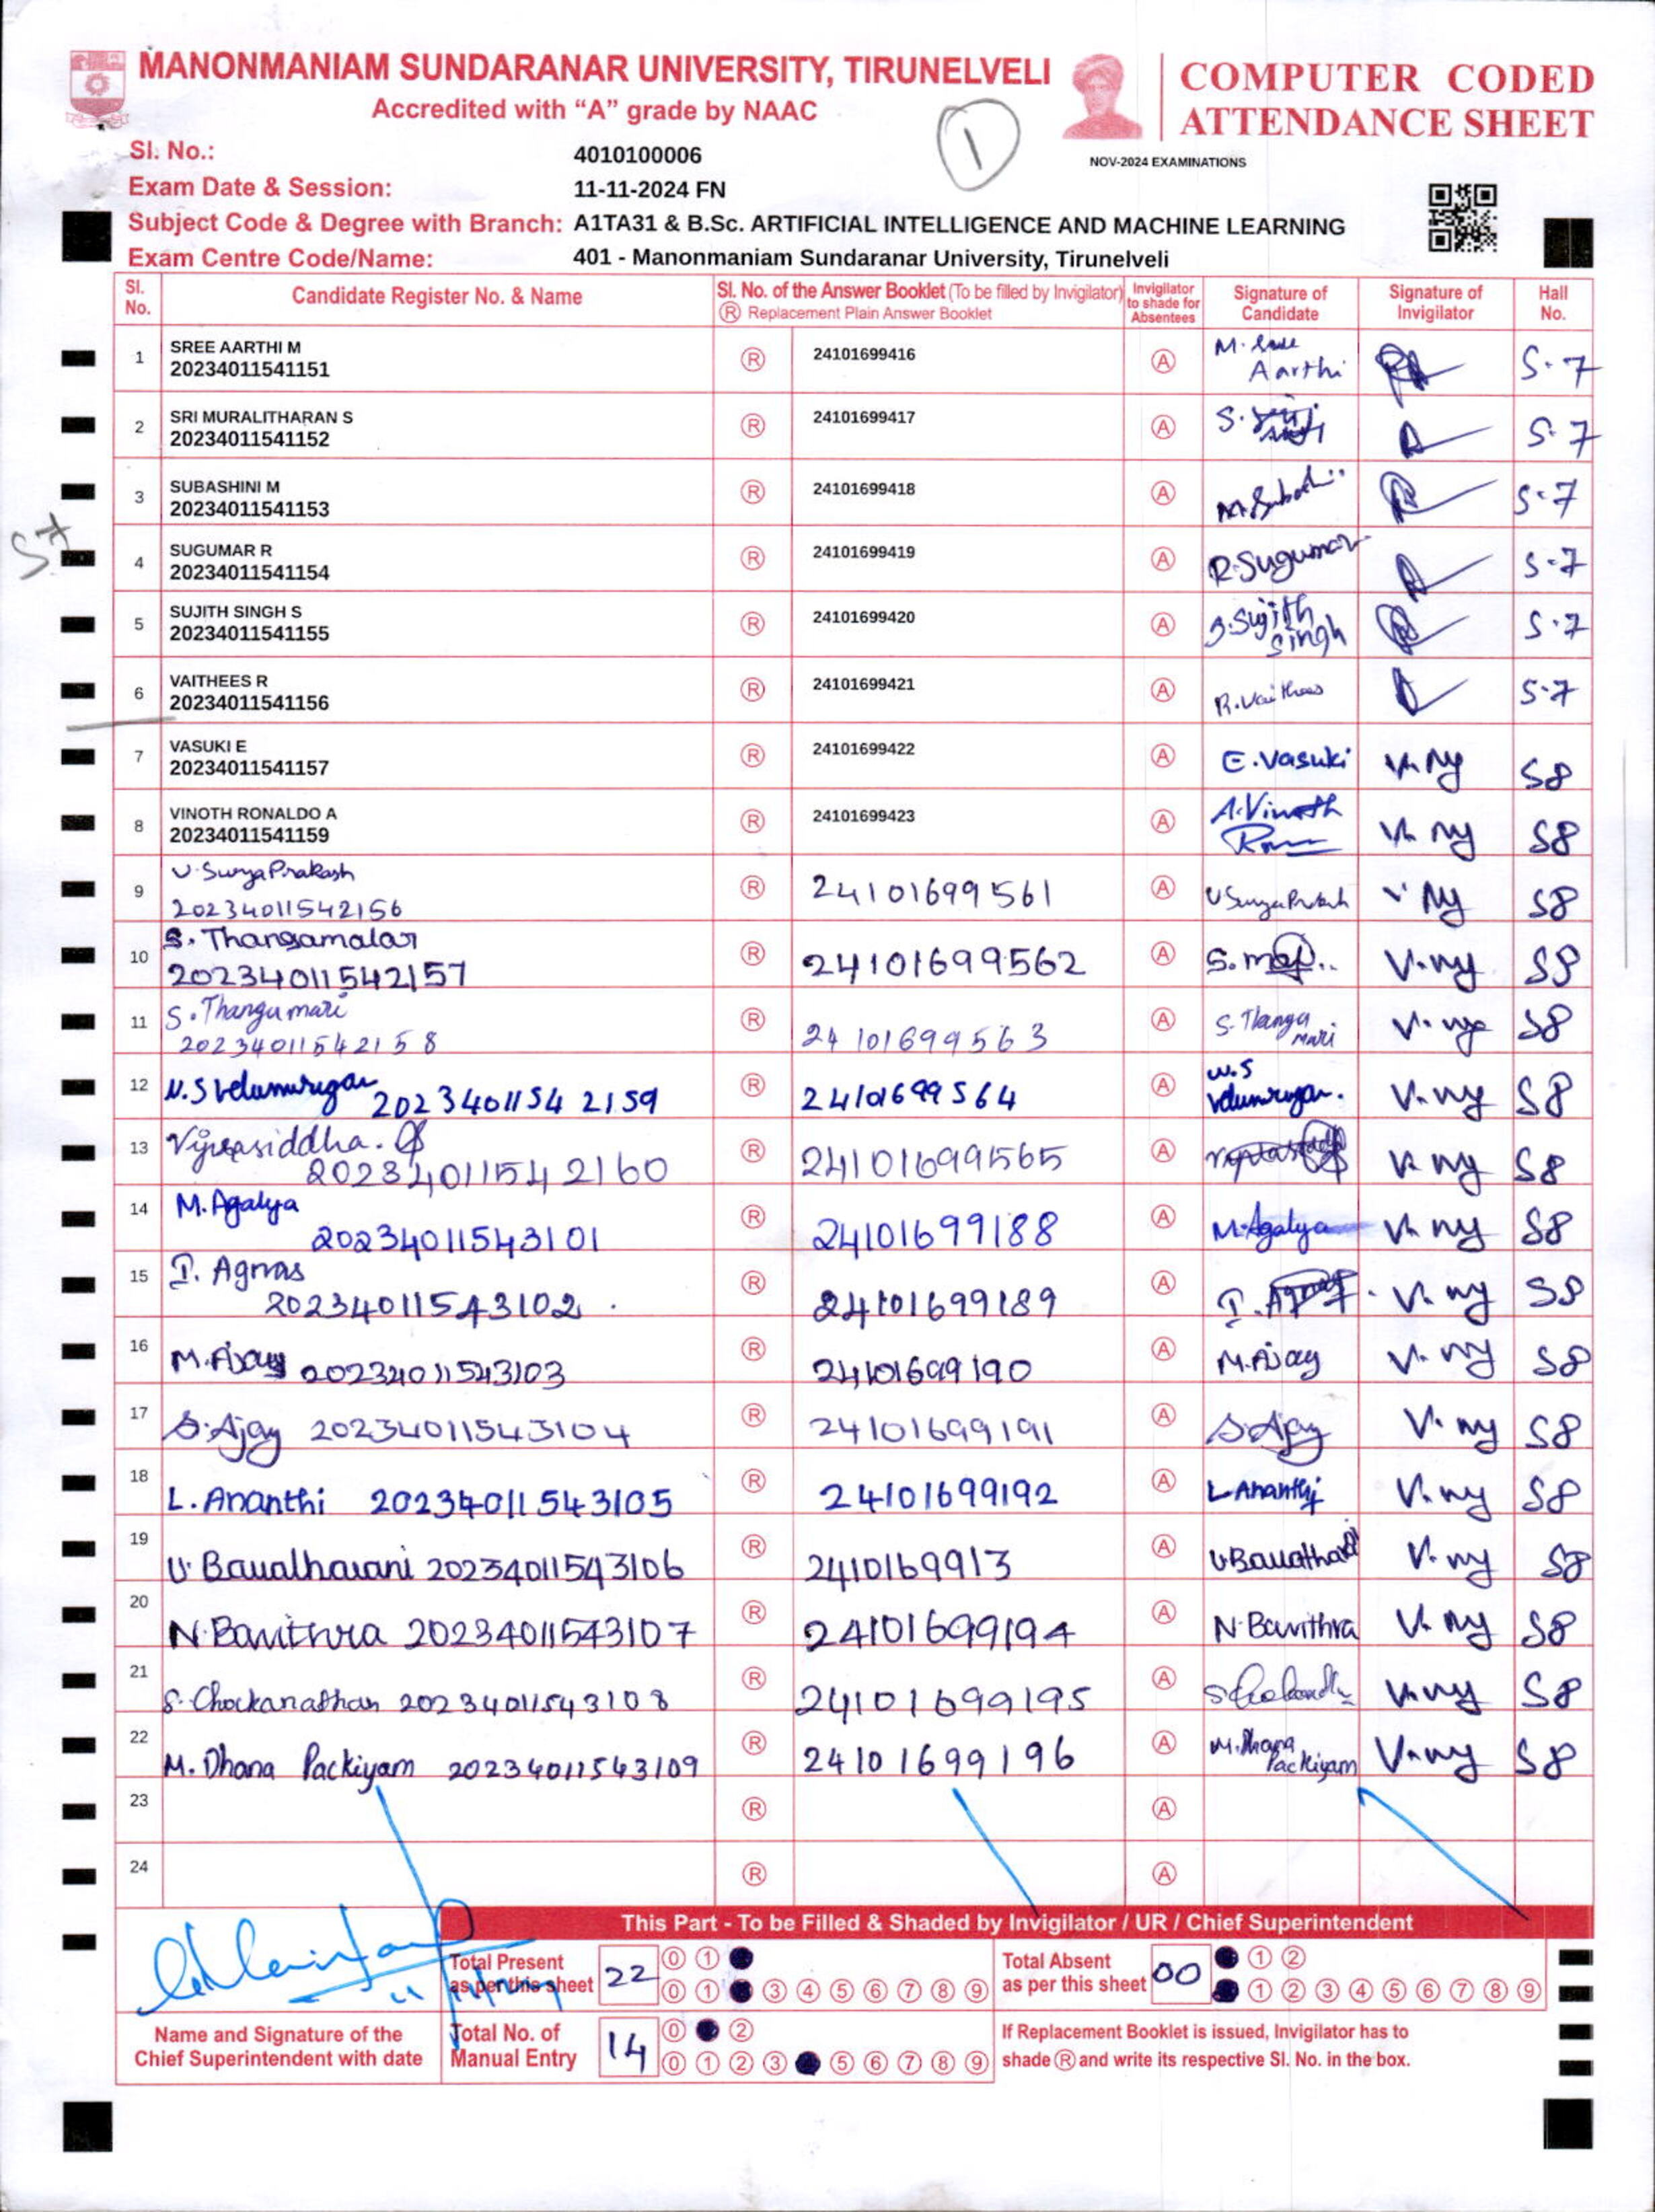 MANONMANIAM SUNDARANAR UNIVERSITY, TIRUNELVELI
Accredited with “A” grade by NAAC
COMPUTER CODED
ATTENDANCE SHEET
1
NOV-2024 EXAMINATIONS
Sl. No.: 4010100006
Exam Date & Session: 11-11-2024 FN
Subject Code & Degree with Branch: A1TA31 & B.Sc. ARTIFICIAL INTELLIGENCE AND MACHINE LEARNING
Exam Centre Code/Name: 401 - Manonmaniam Sundaranar University, Tirunelveli
Sl. No. Candidate Register No. & Name Sl. No. of the Answer Booklet (To be filled by Invigilator) Ⓡ Replacement Plain Answer Booklet Invigilator to shade for Absentees Signature of Candidate Signature of Invigilator Hall No.
1 SREE AARTHI M 20234011541151 Ⓡ 24101699416 Ⓐ M. Sree Aarthi S-7
2 SRI MURALITHARAN S 20234011541152 Ⓡ 24101699417 Ⓐ S-7
3 SUBASHINI M 20234011541153 Ⓡ 24101699418 Ⓐ S-7
S7
4 SUGUMAR R 20234011541154 Ⓡ 24101699419 Ⓐ R.Sugumar S-7
5 SUJITH SINGH S 20234011541155 Ⓡ 24101699420 Ⓐ S.Sujith Singh S-7
6 VAITHEES R 20234011541156 Ⓡ 24101699421 Ⓐ R.Vaithees S-7
7 VASUKI E 20234011541157 Ⓡ 24101699422 Ⓐ E.Vasuki S8
8 VINOTH RONALDO A 20234011541159 Ⓡ 24101699423 Ⓐ A.Vinoth S8
9 U.SuryaPrakash 20234011542156 Ⓡ 24101699561 Ⓐ U SuryaPrakash S8
10 S. Thangamalar 20234011542157 Ⓡ 24101699562 Ⓐ S8
11 S. Thangumari 20234011542158 Ⓡ 24101699563 Ⓐ S. Thanga mari S8
12 N.S Velumurugan 20234011542159 Ⓡ 24101699564 Ⓐ Velumurugan. S8
13 20234011542160 Ⓡ 24101699565 Ⓐ S8
14 M.Agalya 20234011543101 Ⓡ 24101699188 Ⓐ M.Agalya S8
15 I. Agnas 20234011543102 Ⓡ 24101699189 Ⓐ S8
16 M.Ajay 20234011543103 Ⓡ 24101699190 Ⓐ M.Ajay S8
17 S.Ajay 20234011543104 Ⓡ 24101699191 Ⓐ S.Ajay S8
18 L.Ananthi 20234011543105 Ⓡ 24101699192 Ⓐ L.Ananthi S8
19 U. Bavatharani 20234011543106 Ⓡ 2410169913 Ⓐ S8
20 N.Bavithra 20234011543107 Ⓡ 24101699194 Ⓐ N.Bavithra S8
21 S.Chockanathan 20234011543108 Ⓡ 24101699195 Ⓐ S8
22 M. Dhana Packiyam 20234011543109 Ⓡ 24101699196 Ⓐ M.Dhana Packiyam S8
23 Ⓡ Ⓐ
24 Ⓡ Ⓐ
This Part - To be Filled & Shaded by Invigilator / UR / Chief Superintendent
Total Present as per this sheet 22
0 1
0 1 3 4 5 6 7 8 9
Total Absent as per this sheet 00
1 2
1 2 3 4 5 6 7 8 9
Name and Signature of the Chief Superintendent with date
Total No. of Manual Entry 14
0 2
0 1 2 3 5 6 7 8 9
If Replacement Booklet is issued, Invigilator has to
shade Ⓡ and write its respective Sl. No. in the box.